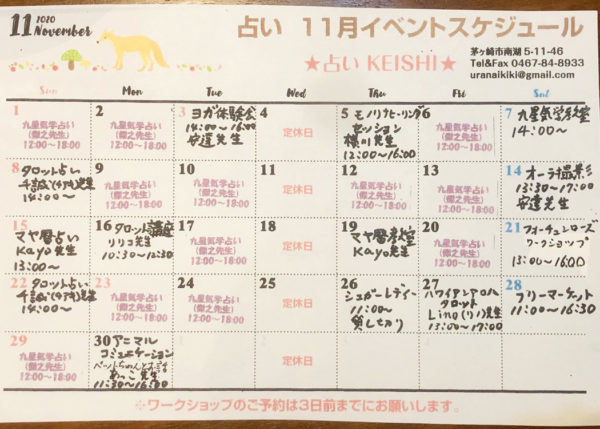 11 2020 November
占い 11月イベントスケジュール
★占い KEISHI★
茅ヶ崎市南湖 5-11-46
Tel&Fax 0467-84-8933
uranaikiki@gmail.com
Sun Mon Tue Wed Thu Fri Sat
1
九星気学占い
先生)
12:00~18:00
2
九星気学占い
先生)
12:00~18:00
3 ヨガ体験会
14:00~16:00
安達先生
4
定休日
5 モノリナヒーリング
セッション
横川先生
12:00~16:00
6
九星気学占い
先生)
12:00~18:00
7 九星気学教室
14:00~
8 タロット占い
先生
14:00~
9
九星気学占い
先生)
12:00~18:00
10
九星気学占い
先生)
12:00~18:00
11
定休日
12
九星気学占い
先生)
12:00~18:00
13
九星気学占い
先生)
12:00~18:00
14 オーラ撮影
13:30~17:00
安達先生
15
マヤ暦占い
Kayo先生
13:00~
16 タロット講座
リリコ先生
10:30~12:30
17
九星気学占い
先生)
12:00~18:00
18
定休日
19
マヤ暦教室
Kayo先生
20
九星気学占い
先生)
12:00~18:00
21
フォーチュンローズ
ワークショップ
13:00~16:00
22 タロット占い
先生
14:00~
23
九星気学占い
先生)
12:00~18:00
24
九星気学占い
先生)
12:00~18:00
25
定休日
26
シュガーレディー
11:00~
貸し切り
27
ハワイアンアロハ
タロット
Lino(リノ)先生
13:00~17:00
28
フリーマーケット
11:00~16:30
29
九星気学占い
先生)
12:00~18:00
30 アニマル
コミュニケーション
ペットちゃんとお話
先生
11:30~16:00
定休日
※ワークショップのご予約は3日前までにお願いします。